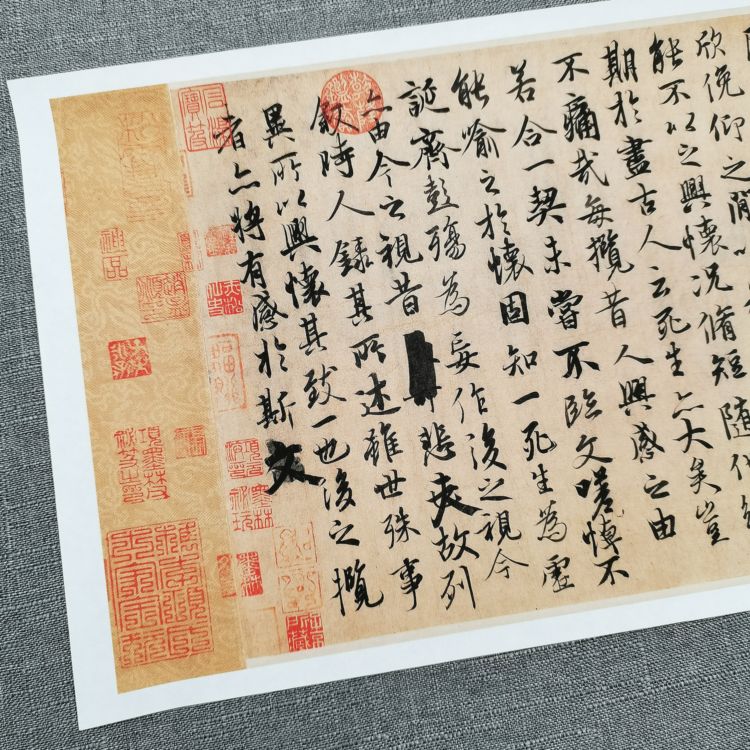 欣俛仰之閒
能不以之興懷況脩短隨化終
期於盡古人云死生亦大矣豈
不痛哉每攬昔人興感之由
若合一契未嘗不臨文嗟悼不
能喻之於懷固知一死生為虛
誕齊彭殤為妄作後之視今
亦由今之視昔悲夫故列
敘時人錄其所述雖世殊事
異所以興懷其致一也後之攬
者亦將有感於斯文
神品
項墨林
秘笈之印